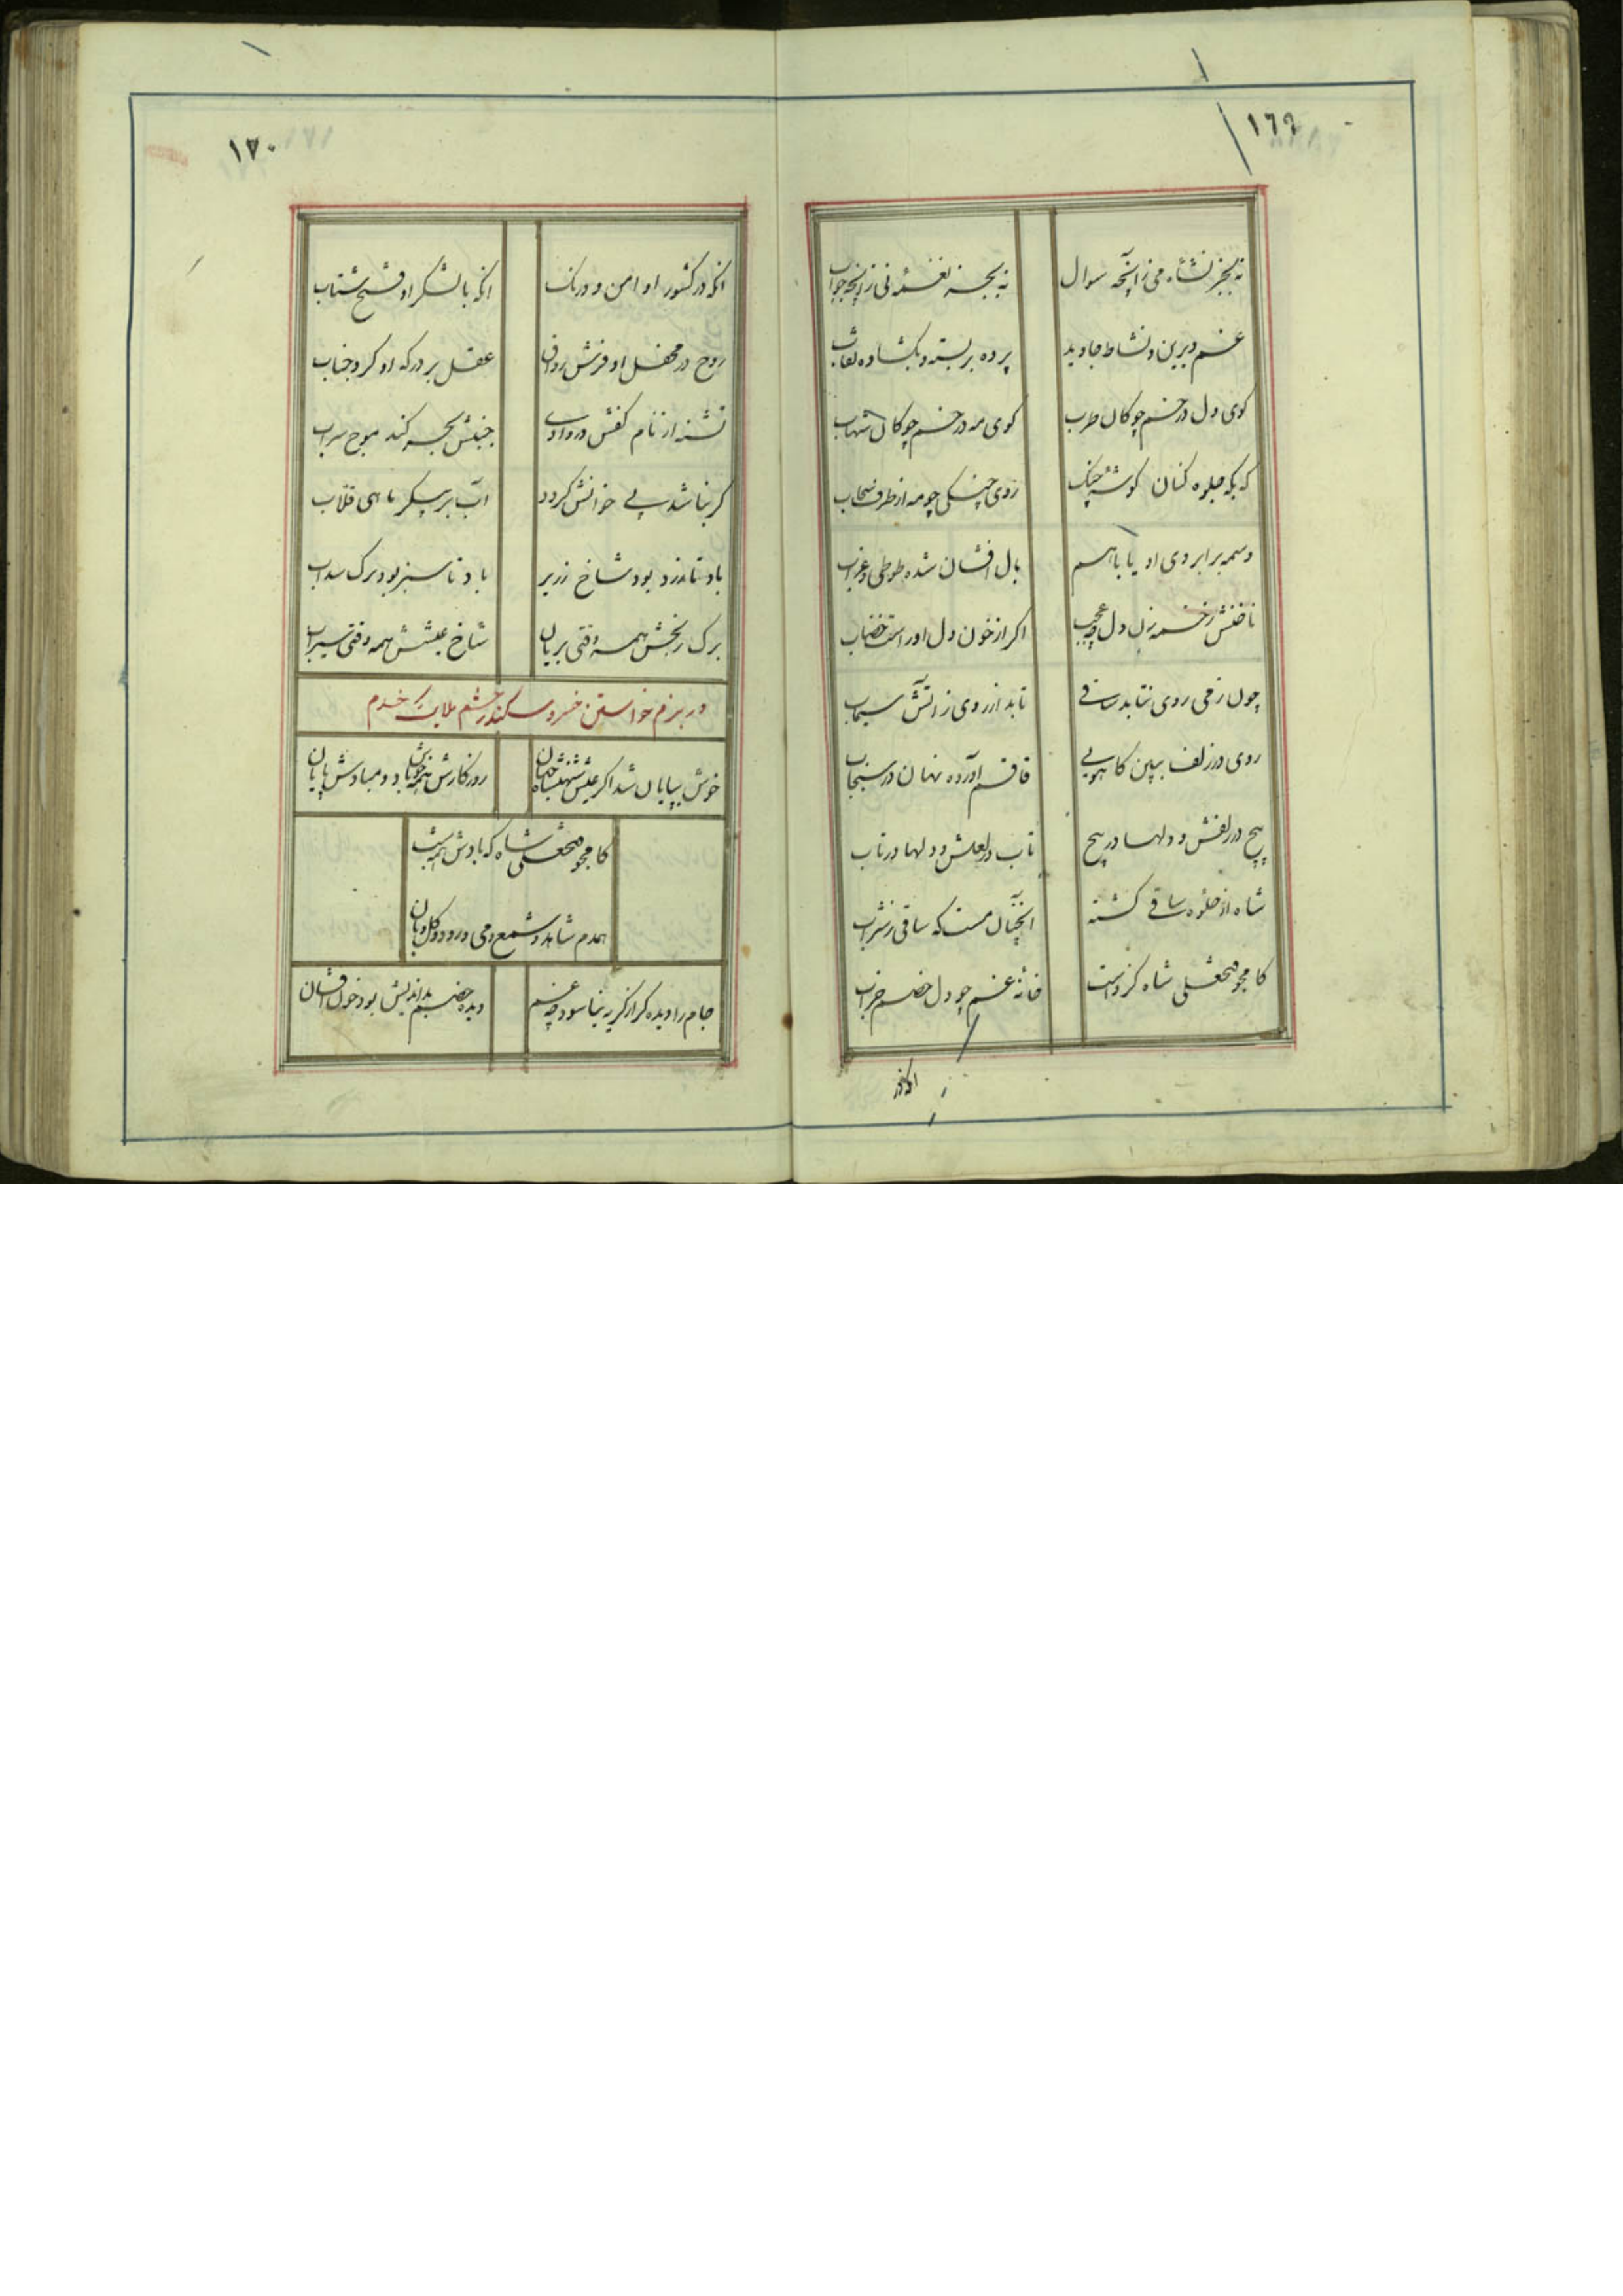 ١٦٩
نه بجز نشاه می زانچه سوال
نه بجز نغمهٔ نی زانچه جواب
غم دیرین و نشاط جاوید
پرده بربسته و بکشاده نقاب
کوی دل در خم چوکان طرب
کوی مه در خم چوکان شهاب
که بکه جلوه کنان کوشهٔ چنک
روی چنکی چو مه از طرف سحاب
وسمه بر ابروی او یا باهم
بال افشان شده طوطی و غراب
ناخنش زخمه زن دل چه عجب
اکر از خون دل اوراست خضاب
چون زمی روی نتابد ساقی
تابد ار روی ز آتش سیماب
روی در زلف ببین کاهویی
قاقم آورده نهان در سنجاب
پیچ در زلفش و دلها در پیچ
تاب در لعلش و دلها در تاب
شاه از جلوه ساقی کشته
آنچنان مست که ساقی ز شراب
کامجو فتحعلی شاه کزوست
خانهٔ غم چو دل خصم خراب
انکه در
١٧٠
انکه در کشور او امن و درنک
انکه با لشکر او فتح شتاب
روح در محفل او فرش رواق
عقل بر درکه او کرد جناب
تشنه از نام کفش در وادی
جنبش بحر کند موج سراب
کر نباشد پی خوانش کردد
آب بر پیکر ماهی قلاب
باد تا زرد بود شاخ زریر
باد تا سبز بود برک سداب
برک رنجش همه وقتی بریان
شاخ عیشش همه وقتی سیراب
در بزم خواستن خسرو سکندر حشم ملایک خدم
خوش بپایان شد اکر عیش شهنشاه جهان
روزکارش همه خوش باد و مبادش پایان
کامجو فتحعلی شاه که بادش همه شب
همدم شاهد و شمع و می و رود و کل و بان
جام را دیده کر از کریه نیاسود چه غم
دیده خصم بداندیش بود خون افشان